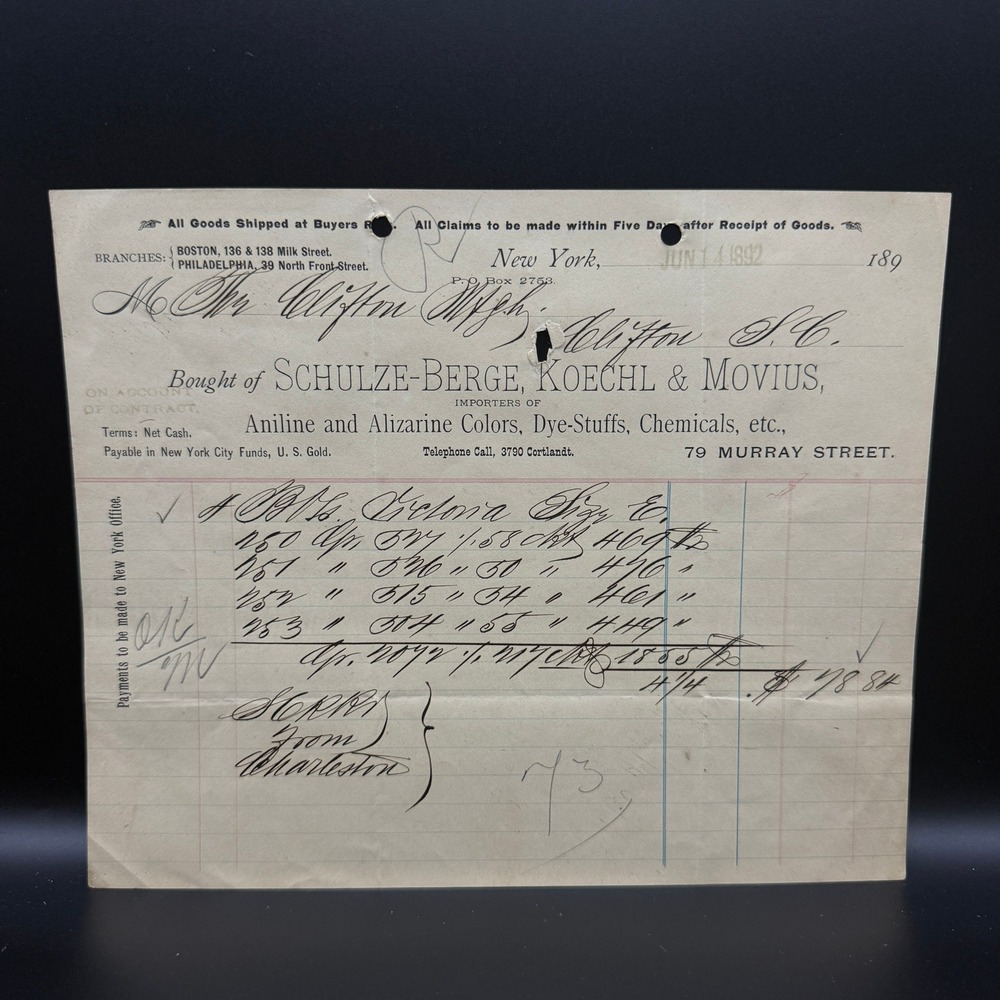 All Goods Shipped at Buyers R . All Claims to be made within Five Da after Receipt of Goods.
BRANCHES: { BOSTON, 136 & 138 Milk Street.
PHILADELPHIA, 39 North Front Street.
New York, JUN 14 1892 189
P. O Box 2753.
M The Clifton Mfg Co.
Clifton S. C.
Bought of SCHULZE-BERGE, KOECHL & MOVIUS,
IMPORTERS OF
ON ACCOUNT
OF CONTRACT.
Aniline and Alizarine Colors, Dye-Stuffs, Chemicals, etc.,
Terms: Net Cash.
Payable in New York City Funds, U. S. Gold.
Telephone Call, 3790 Cortlandt.
79 MURRAY STREET.
Payments to be made to New York Office.
4 Bbls. Victoria Size E.
250 Gr. 527 % 58 469
251 " 526 " 50 " 476 "
252 " 515 " 54 " 461 "
253 " 504 " 55 " 449 "
Gr. 2072 % 217 1855
4 1/4 $ 78 84
OK
from
Charleston
73